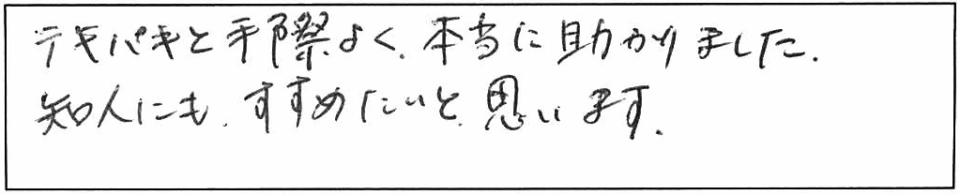 テキパキと手際よく、本当に助かりました。
知人にも、すすめたいと思います。